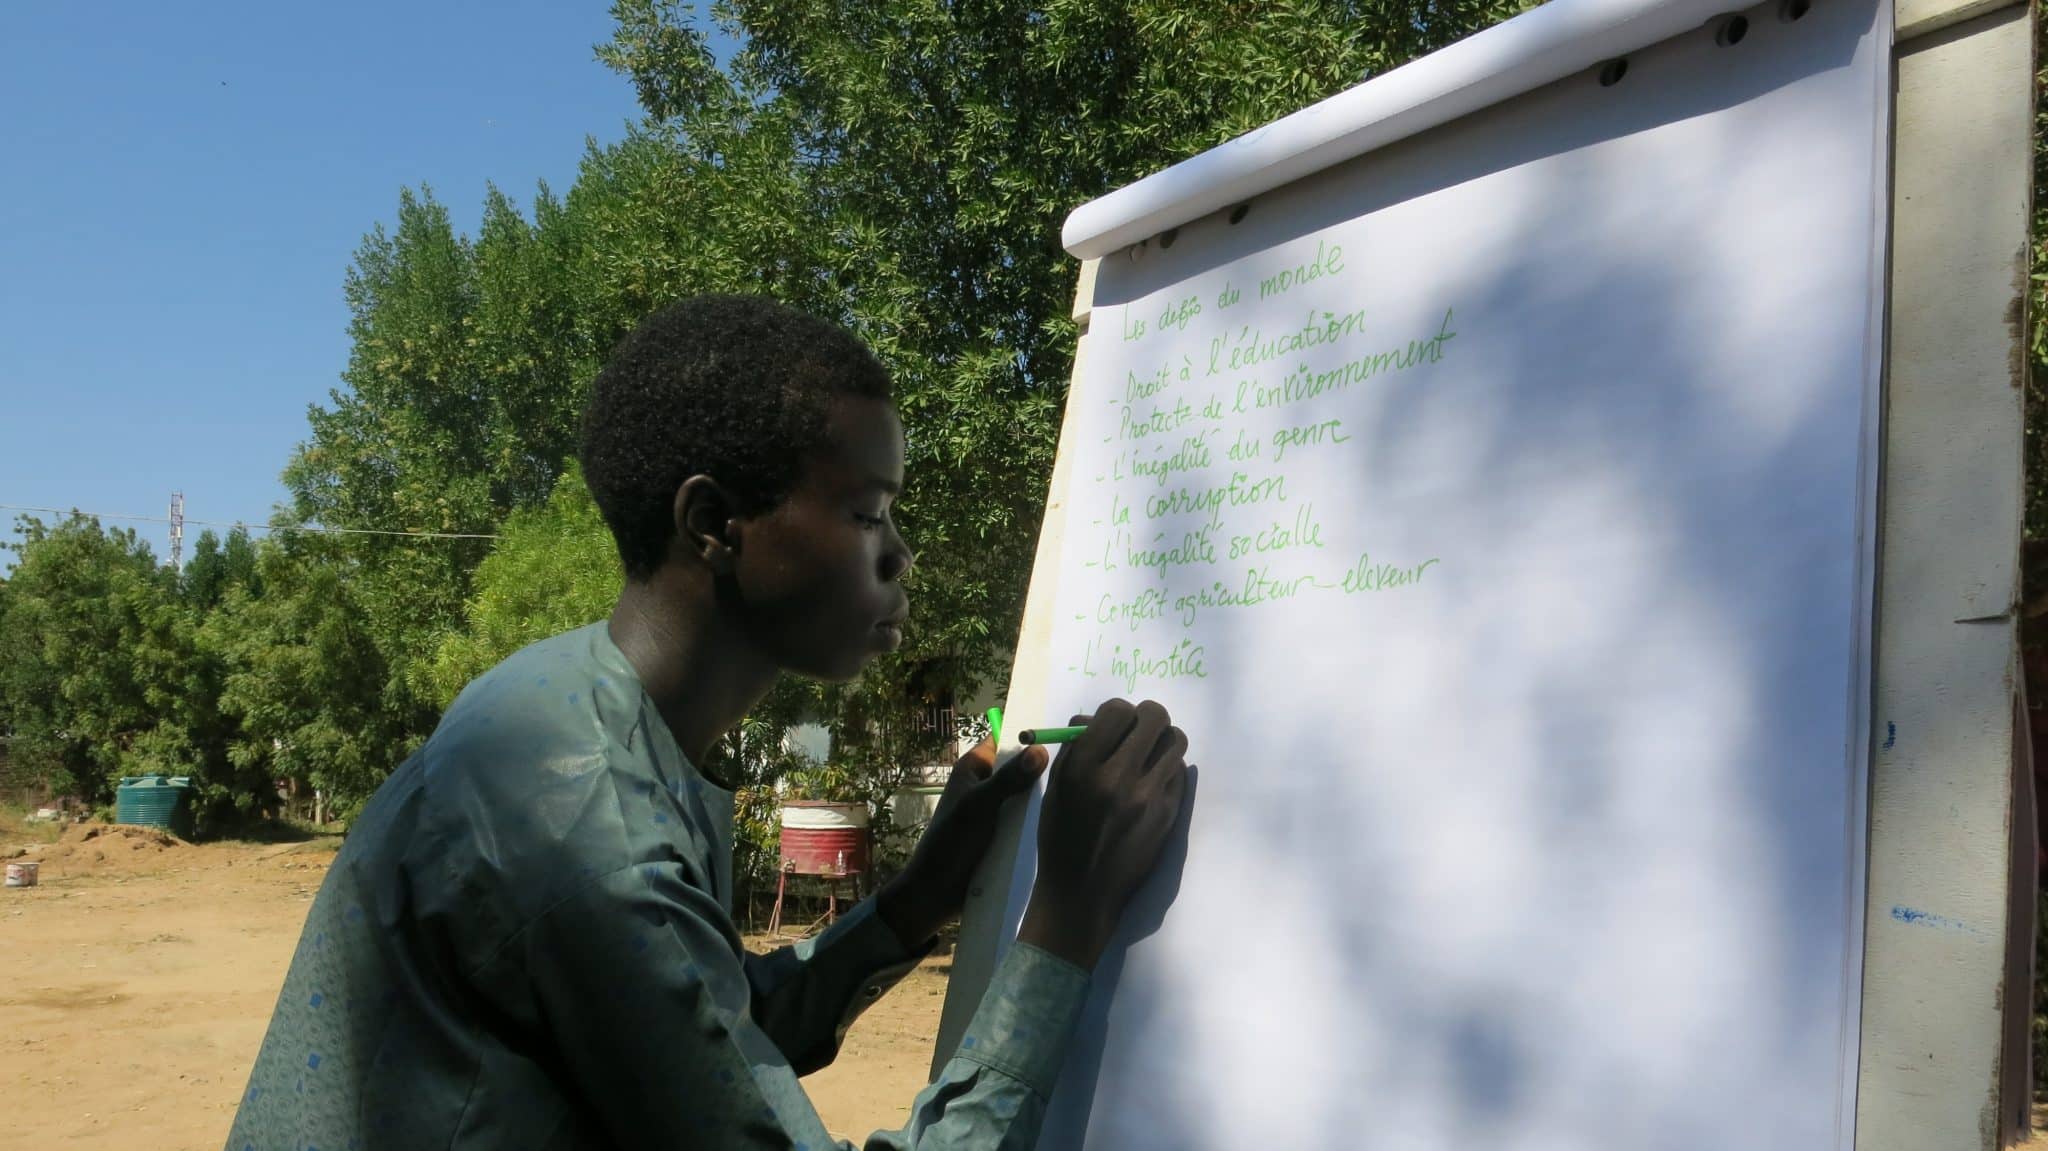 Les defis du monde
- Droit à l'éducation
- Protect= de l'environnement
- L'inégalité du genre
- la corruption
- L'inégalité socialle
- Conflit agriculteur-eleveur
- L'injustice